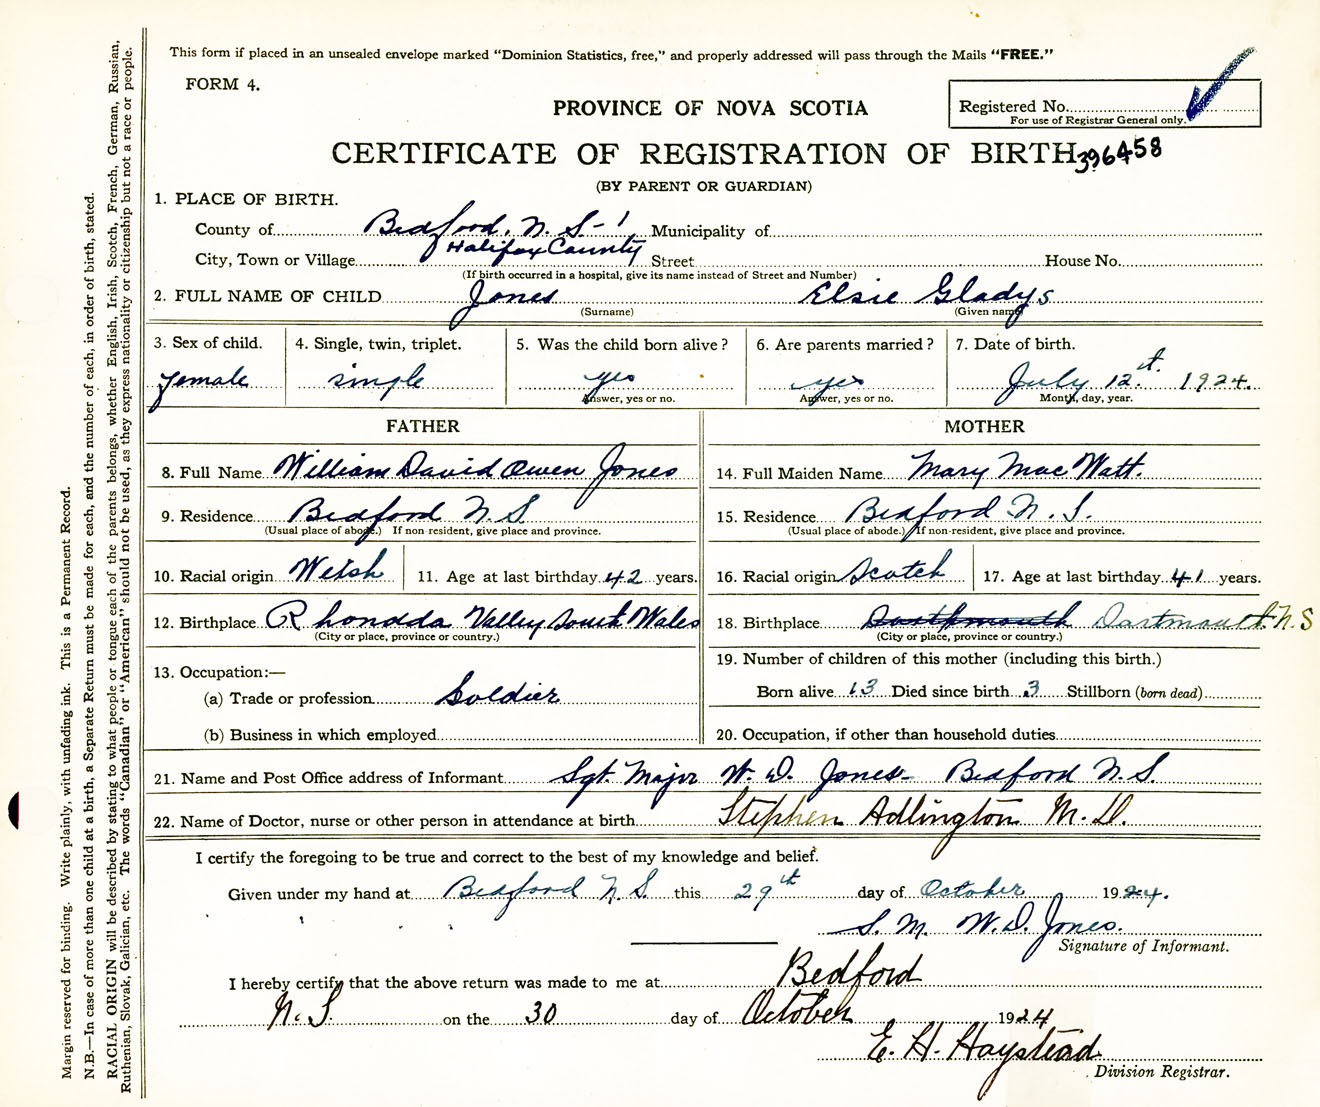 This form if placed in an unsealed envelope marked "Dominion Statistics, free," and properly addressed will pass through the Mails "FREE."
FORM 4.
Registered No.
For use of Registrar General only.
PROVINCE OF NOVA SCOTIA
CERTIFICATE OF REGISTRATION OF BIRTH 396458
(BY PARENT OR GUARDIAN)
1. PLACE OF BIRTH.
County of Bedford, N. S-1 Municipality of
Halifax County
City, Town or Village Street House No.
(If birth occurred in a hospital, give its name instead of Street and Number)
2. FULL NAME OF CHILD Jones Elsie Gladys
(Surname) (Given name)
3. Sex of child. 4. Single, twin, triplet. 5. Was the child born alive? 6. Are parents married? 7. Date of birth.
female single yes yes July 12th. 1924.
Answer, yes or no. Answer, yes or no. Month, day, year.
FATHER MOTHER
8. Full Name William David Owen Jones 14. Full Maiden Name Mary Mac Watt.
9. Residence Bedford N.S. 15. Residence Bedford N. S.
(Usual place of abode.) If non-resident, give place and province. (Usual place of abode.) If non-resident, give place and province.
10. Racial origin Welsh 11. Age at last birthday 42 years. 16. Racial origin Scotch 17. Age at last birthday 41 years.
12. Birthplace Rhondda Valley South Wales 18. Birthplace Dartmouth Dartmouth N.S
(City or place, province or country.) (City or place, province or country.)
13. Occupation:— 19. Number of children of this mother (including this birth.)
(a) Trade or profession Soldier Born alive 13 Died since birth 3 Stillborn (born dead)
(b) Business in which employed 20. Occupation, if other than household duties
21. Name and Post Office address of Informant Sgt. Major W. D. Jones- Bedford N.S.
22. Name of Doctor, nurse or other person in attendance at birth Stephen Adlington M.D.
I certify the foregoing to be true and correct to the best of my knowledge and belief.
Given under my hand at Bedford N.S. this 29th day of October 1924.
S. M. W.D. Jones.
Signature of Informant.
I hereby certify that the above return was made to me at Bedford
N.S. on the 30 day of October 1924
E. H. Haystead
Division Registrar.
Margin reserved for binding. Write plainly, with unfading ink. This is a Permanent Record.
N.B.—In case of more than one child at a birth, a Separate Return must be made for each, and the number of each, in order of birth, stated.
RACIAL ORIGIN will be described by stating to what people or tongue each of the parents belongs, whether English, Irish, Scotch, French, German, Russian,
Ruthenian, Slovak, Galician, etc. The words "Canadian" or "American" should not be used, as they express nationality or citizenship but not a race or people.